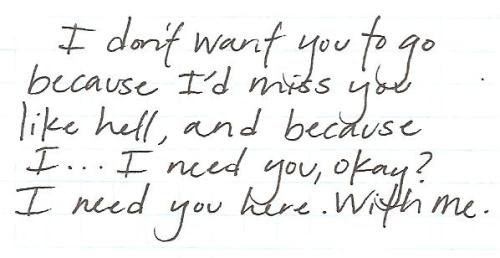 I don't want you to go
because I'd miss you
like hell, and because
I... I need you, okay?
I need you here. With me.